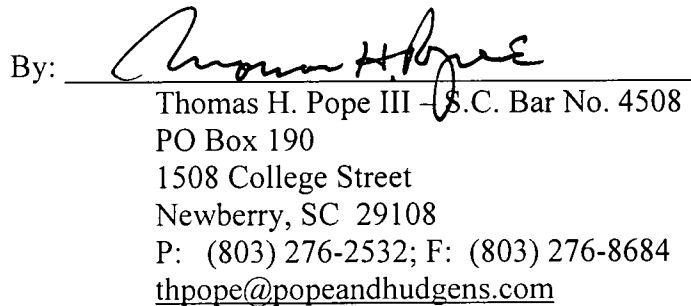 By: Thomas H. Pope III
Thomas H. Pope III – S.C. Bar No. 4508
PO Box 190
1508 College Street
Newberry, SC 29108
P: (803) 276-2532; F: (803) 276-8684
thpope@popeandhudgens.com